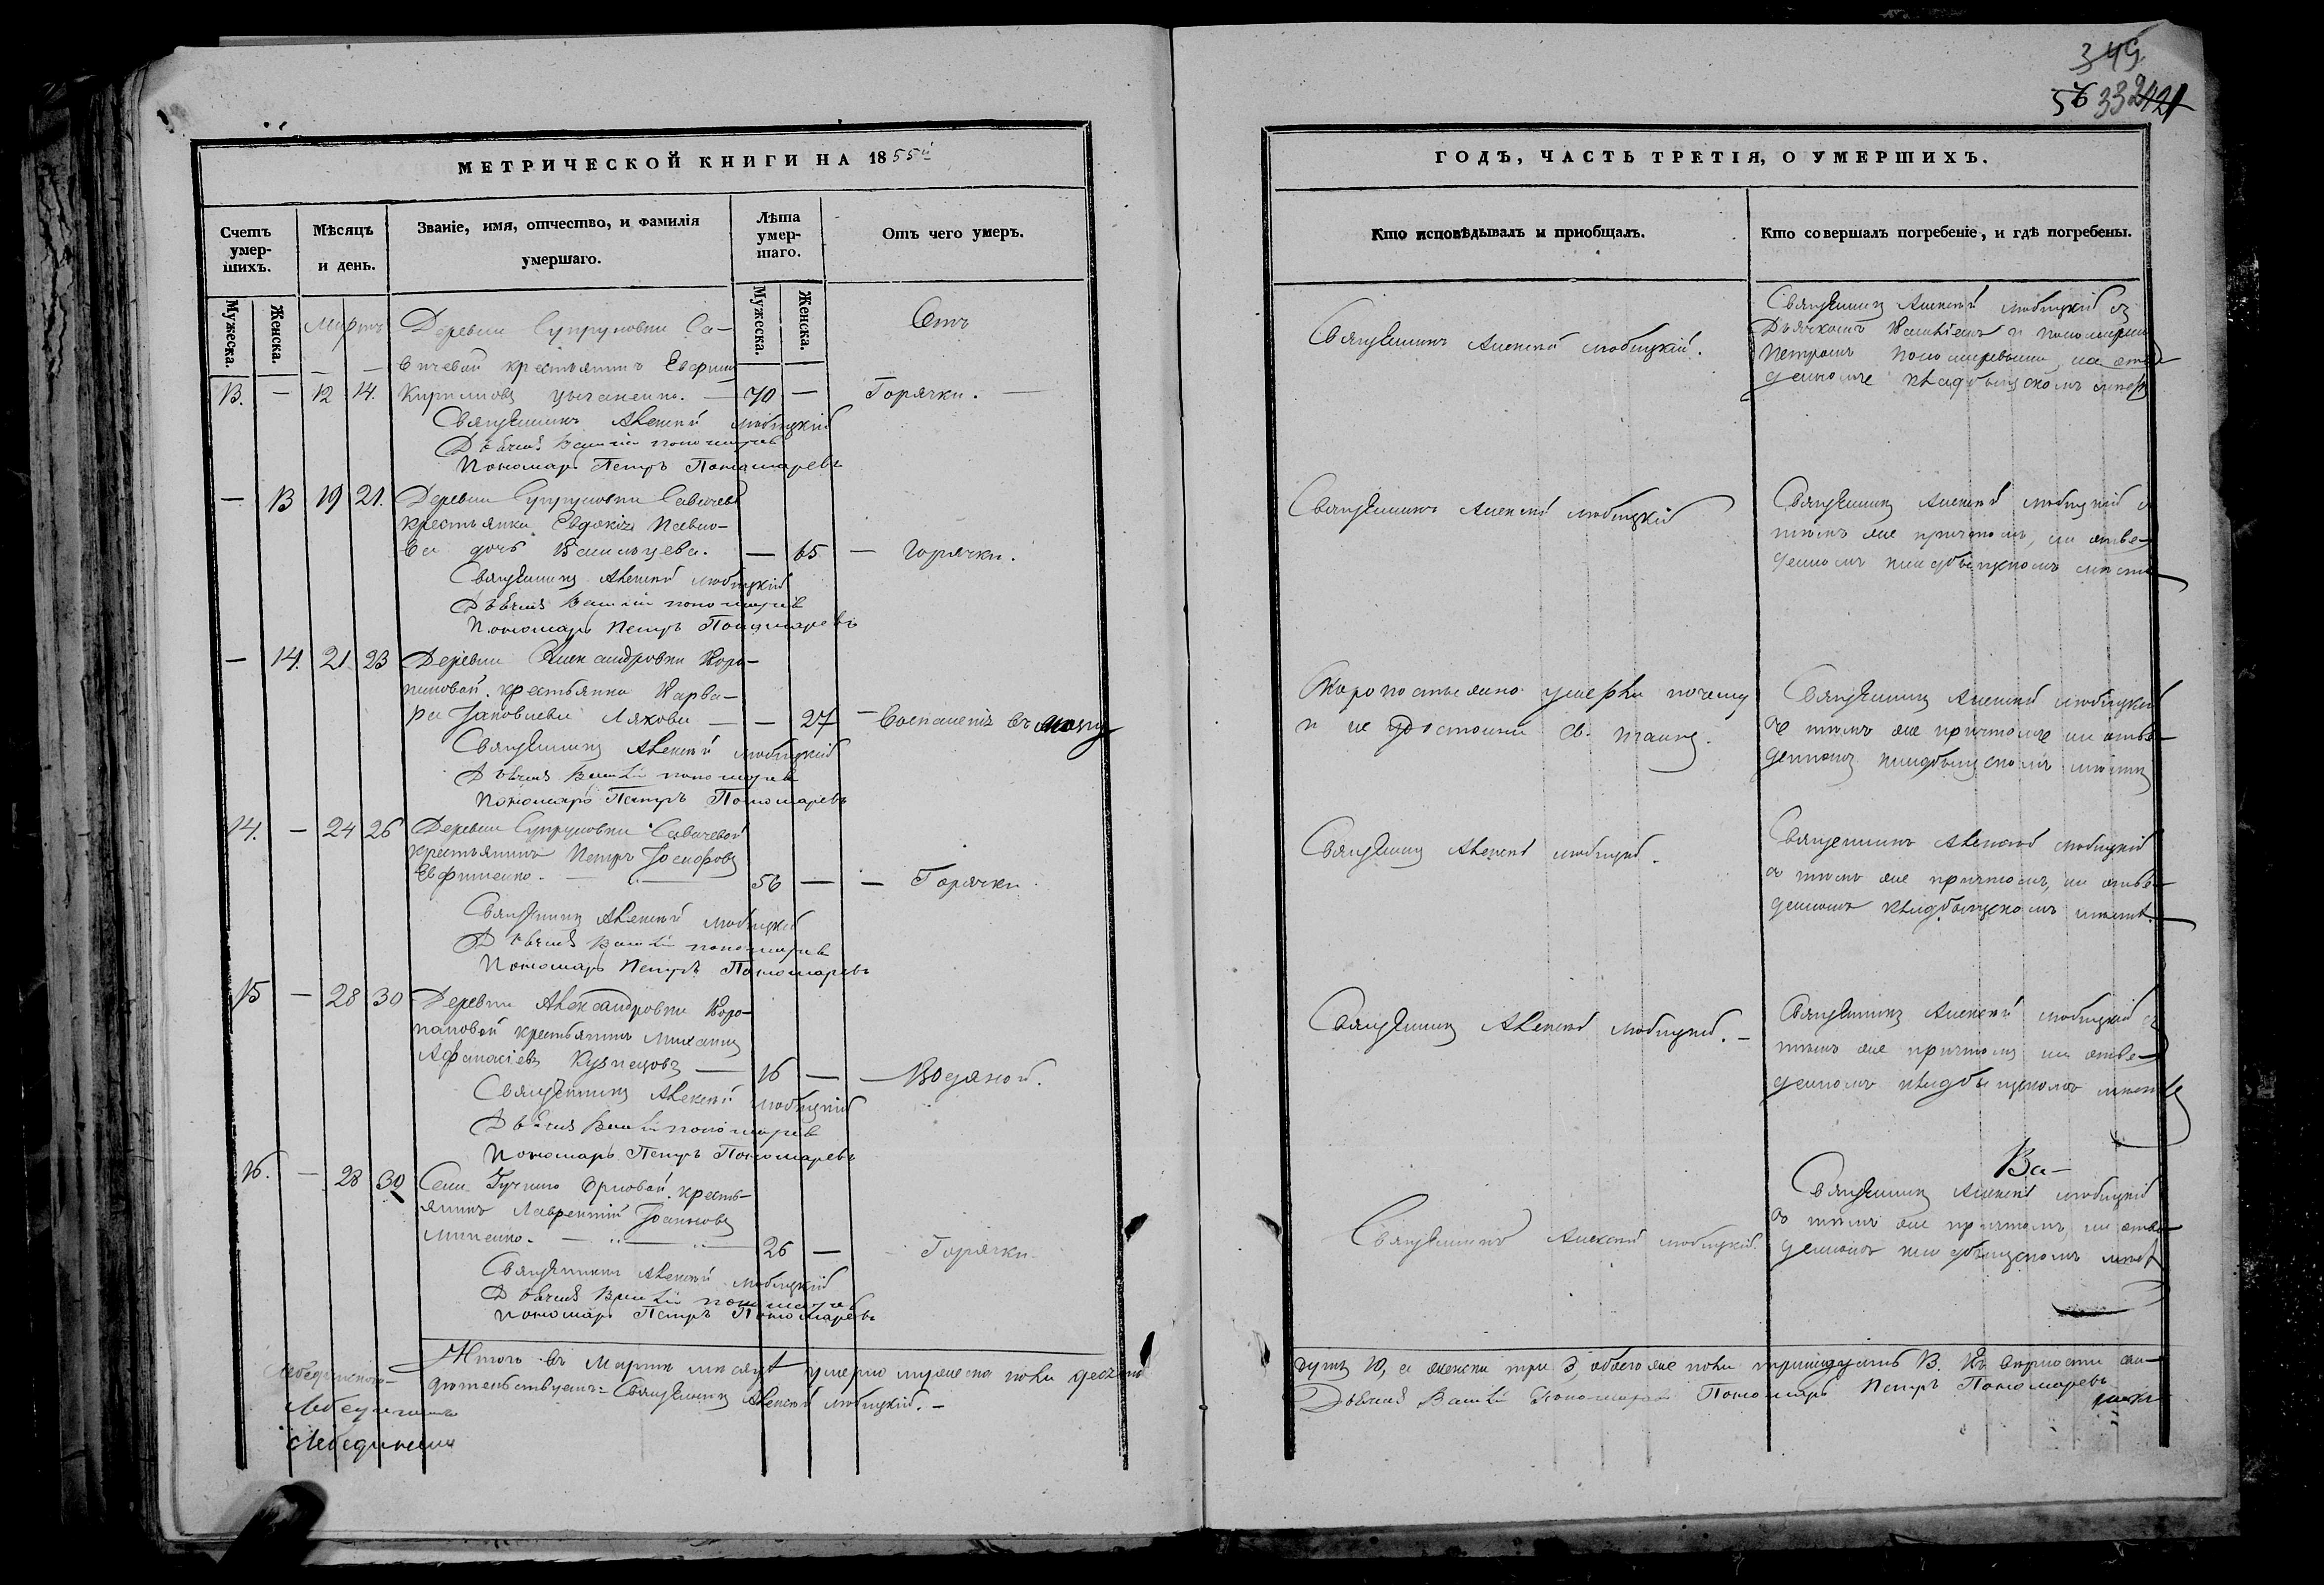 349
56 332 421
МЕТРИЧЕСКОЙ КНИГИ НА 1855й
Счетъ умер-шихъ.
Мужеска.
Женска.
Мѣсяцъ и день.
Званіе, имя, отчество, и фамилія умершаго.
Лѣта умер-шаго.
Мужеска.
Женска.
Отъ чего умеръ.
Мартъ
Деревни Супруновки Са-
вичевой крестьянинъ
Отъ
13. — 12 14. Кирилловъ Цыганенко. — 70 — Горячки. —
Священникъ Алексѣй Любицкій
Дьячекъ Василій Пономаревъ
Пономарь Петръ Пономаревъ
— 13 19 21. Деревни Супруновки Савичевой
крестьянка Евдокія Павло-
ва дочь — 65 — Горячки.
Священникъ Алексѣй Любицкій
Дьячекъ Василій Пономаревъ
Пономарь Петръ Пономаревъ
— 14. 21 23 Деревни Александровки Коро-
повой крестьянка Варва-
ра Іаковлева Ляхова — — 27 — Воспаленія въ мозгу
Священникъ Алексѣй Любицкій
Дьячекъ Василій Пономаревъ
Пономарь Петръ Пономаревъ
14. — 24 26 Деревни Супруновки Савичевой
крестьянинъ Петръ Іосифовъ
Ефименко. — 56 — — Горячки.
Священникъ Алексѣй Любицкій
Дьячекъ Василій Пономаревъ
Пономарь Петръ Пономаревъ
15 — 28 30 Деревни Александровки Коро-
повой крестьянинъ Михаилъ
Афанасіевъ Кузнецовъ — 16 — — Водяной.
Священникъ Алексѣй Любицкій
Дьячекъ Василій Пономаревъ
Пономарь Петръ Пономаревъ
16. — 28 30 Села Гучина Орловой кресть-
янинъ Лаврентій Іоанновъ
Миненко. — 26 — Горячки.
Священникъ Алексѣй Любицкій
Дьячекъ Василій Пономаревъ
Пономарь Петръ Пономаревъ
Итого въ Мартѣ мѣсяцѣ умерло мужеска пола десять
дѣтельствуемъ: Священникъ Алексѣй Любицкій. —
ГОДЪ, ЧАСТЬ ТРЕТІЯ, О УМЕРШИХЪ.
Кто исповѣдывалъ и пріобщалъ.
Кто совершалъ погребеніе, и гдѣ погребены.
Священникъ Алексѣй Любицкій.
Священникъ Алексѣй Любицкій съ
Дьячкомъ Василіемъ и пономаремъ
Петромъ Пономаревыми, на отве-
денномъ кладбищскомъ мѣстѣ
Священникъ Алексѣй Любицкій
Священникъ Алексѣй Любицкій съ
тѣмъ же причтомъ, на отве-
денномъ кладбищскомъ мѣстѣ
Скоропостижно умерла почему
и не удостоена Св. Таинъ.
Священникъ Алексѣй Любицкій
съ тѣмъ же причтомъ на отве-
денномъ кладбищскомъ мѣстѣ
Священникъ Алексѣй Любицкій.
Священникъ Алексѣй Любицкій
съ тѣмъ же причтомъ, на отве-
денномъ кладбищскомъ мѣстѣ.
Священникъ Алексѣй Любицкій. —
Священникъ Алексѣй Любицкій съ
тѣмъ же причтомъ на отве-
денномъ кладбищскомъ мѣстѣ
Ва-
Священникъ Алексѣй Любицкій.
Священникъ Алексѣй Любицкій
съ тѣмъ же причтомъ, на отве-
денномъ кладбищскомъ мѣстѣ
душъ 10, а женска три 3, обоего же пола тринадцать 13. Въ вѣрности сви-
Дьячекъ Василій Пономаревъ Пономарь Петръ Пономаревъ